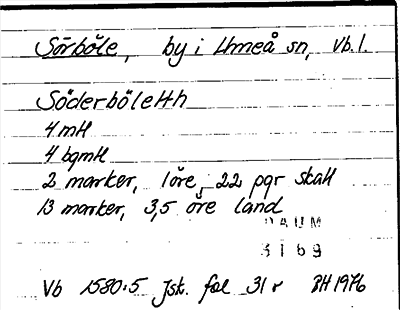 Sörböle, by i Umeå sn, Vb.l.
Söderböleth
4 mtl
4 bgmtl
2 marker, 1 öre, 22 pgr skatt
13 marker, 3,5 öre land
DAUM
3169
Vb 1580:5 Jsk. fol 31 r BH 1976